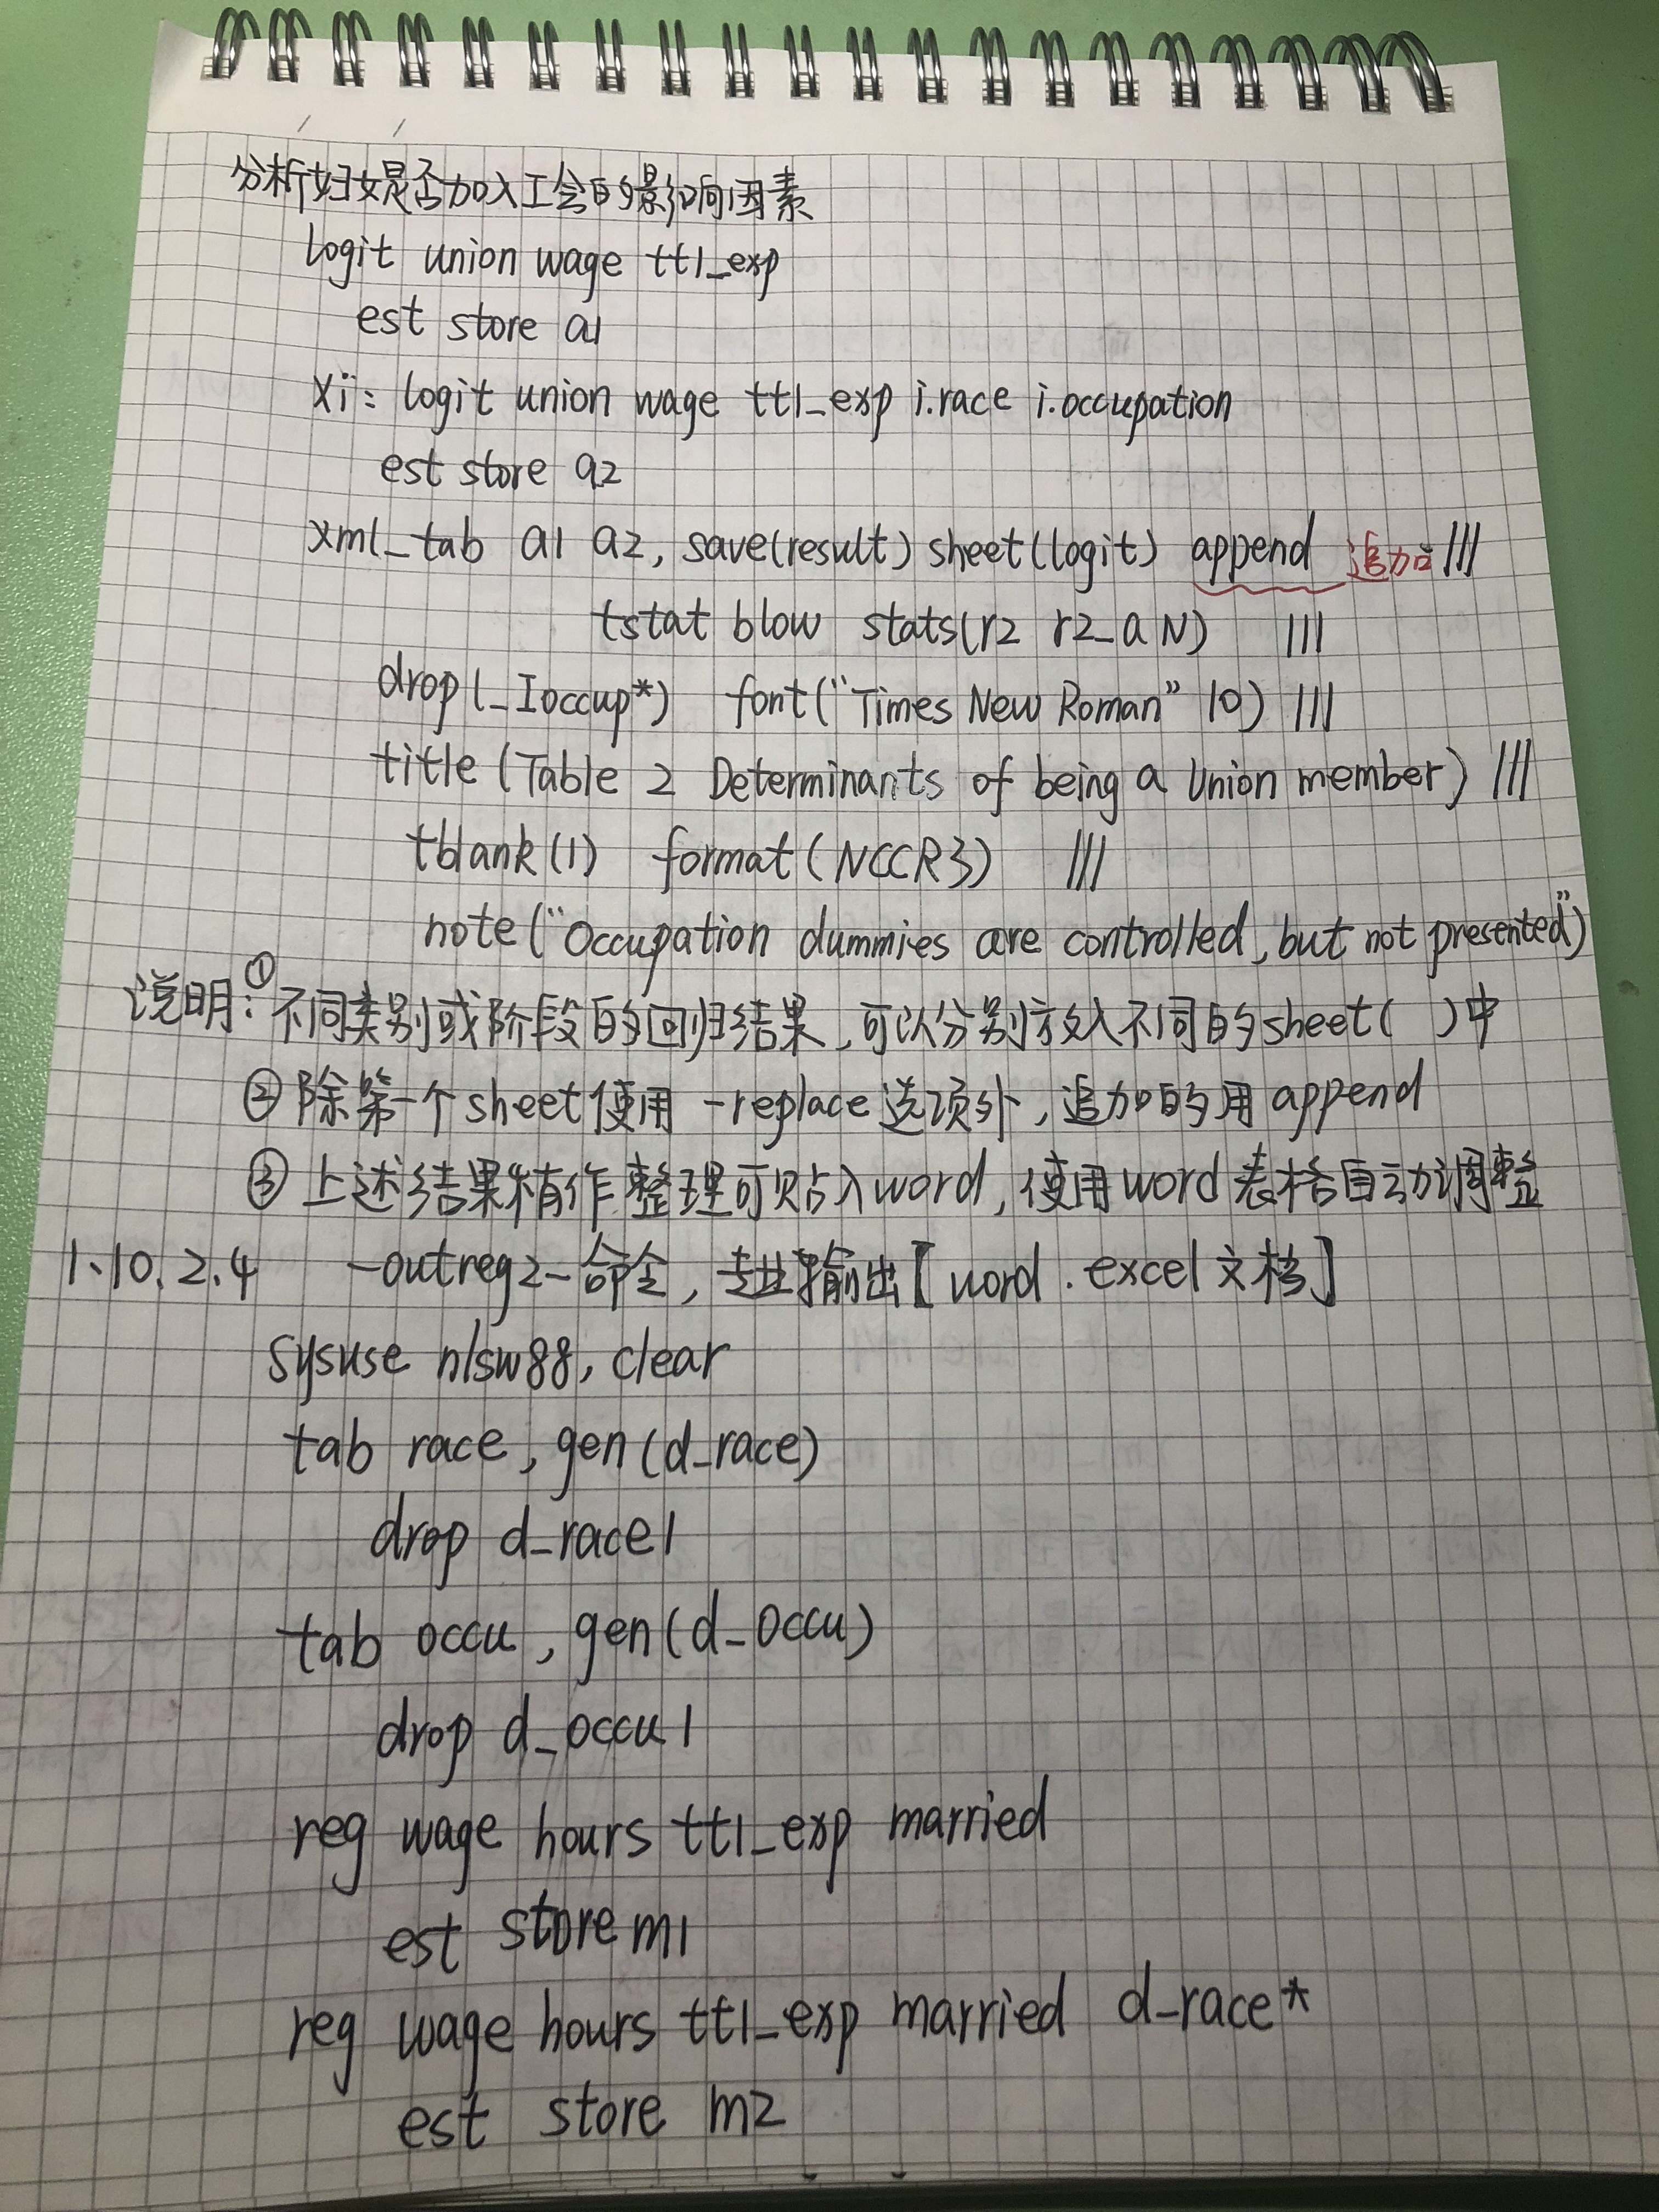 分析妇女是否加入工会的影响因素
logit union wage ttl_exp
est store a1
xi: logit union wage ttl_exp i.race i.occupation
est store a2
xml_tab a1 a2, save(result) sheet(logit) append 追加 ///
tstat blow stats(r2 r2_a N) ///
drop(_Ioccup*) font("Times New Roman" 10) ///
title (Table 2 Determinants of being a Union member) ///
tblank(1) format(NCCR3) ///
note("Occupation dummies are controlled, but not presented")
说明:①不同类别或阶段的回归结果,可以分别放入不同的sheet( )中
②除第一个sheet使用 -replace选项外,追加的用append
③上述结果稍作整理可贴入word,使用word表格自动调整
1.10.2.4 -outreg2-命令,专业输出[word.excel文档]
sysuse nlsw88, clear
tab race, gen(d_race)
drop d_race1
tab occu, gen(d_occu)
drop d_occu1
reg wage hours ttl_exp married
est store m1
reg wage hours ttl_exp married d_race*
est store m2